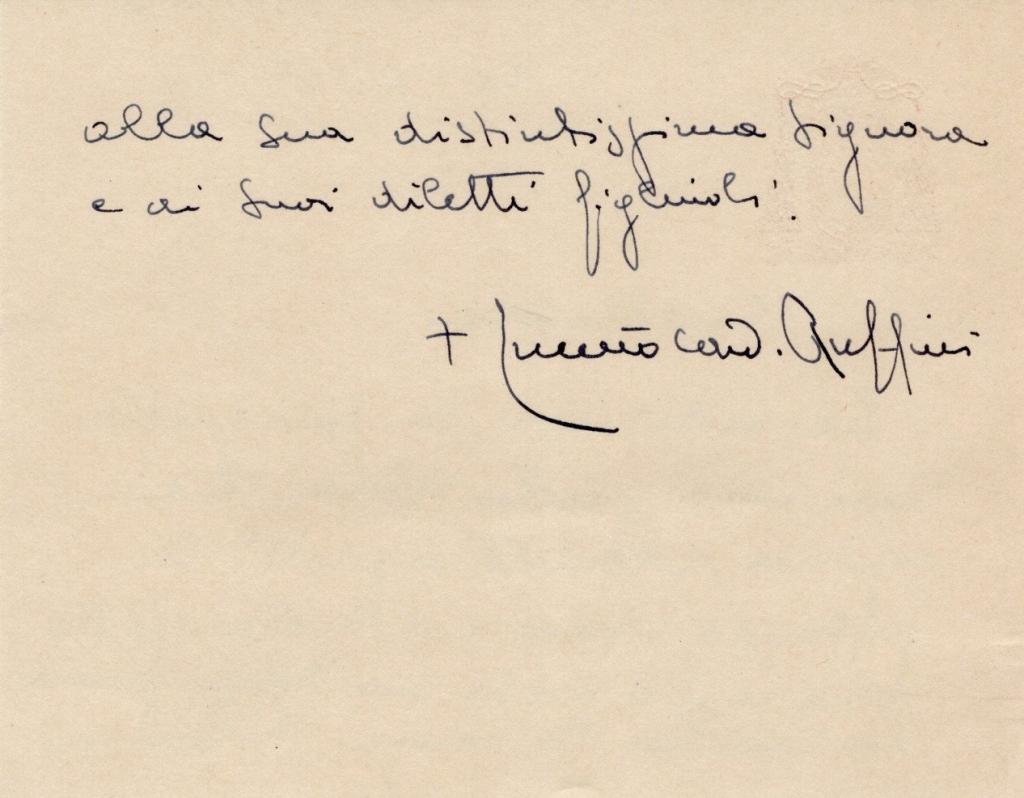 alla Sua distintissima Signora
e ai Suoi diletti figliuoli.
+ Ernesto card. Ruffini